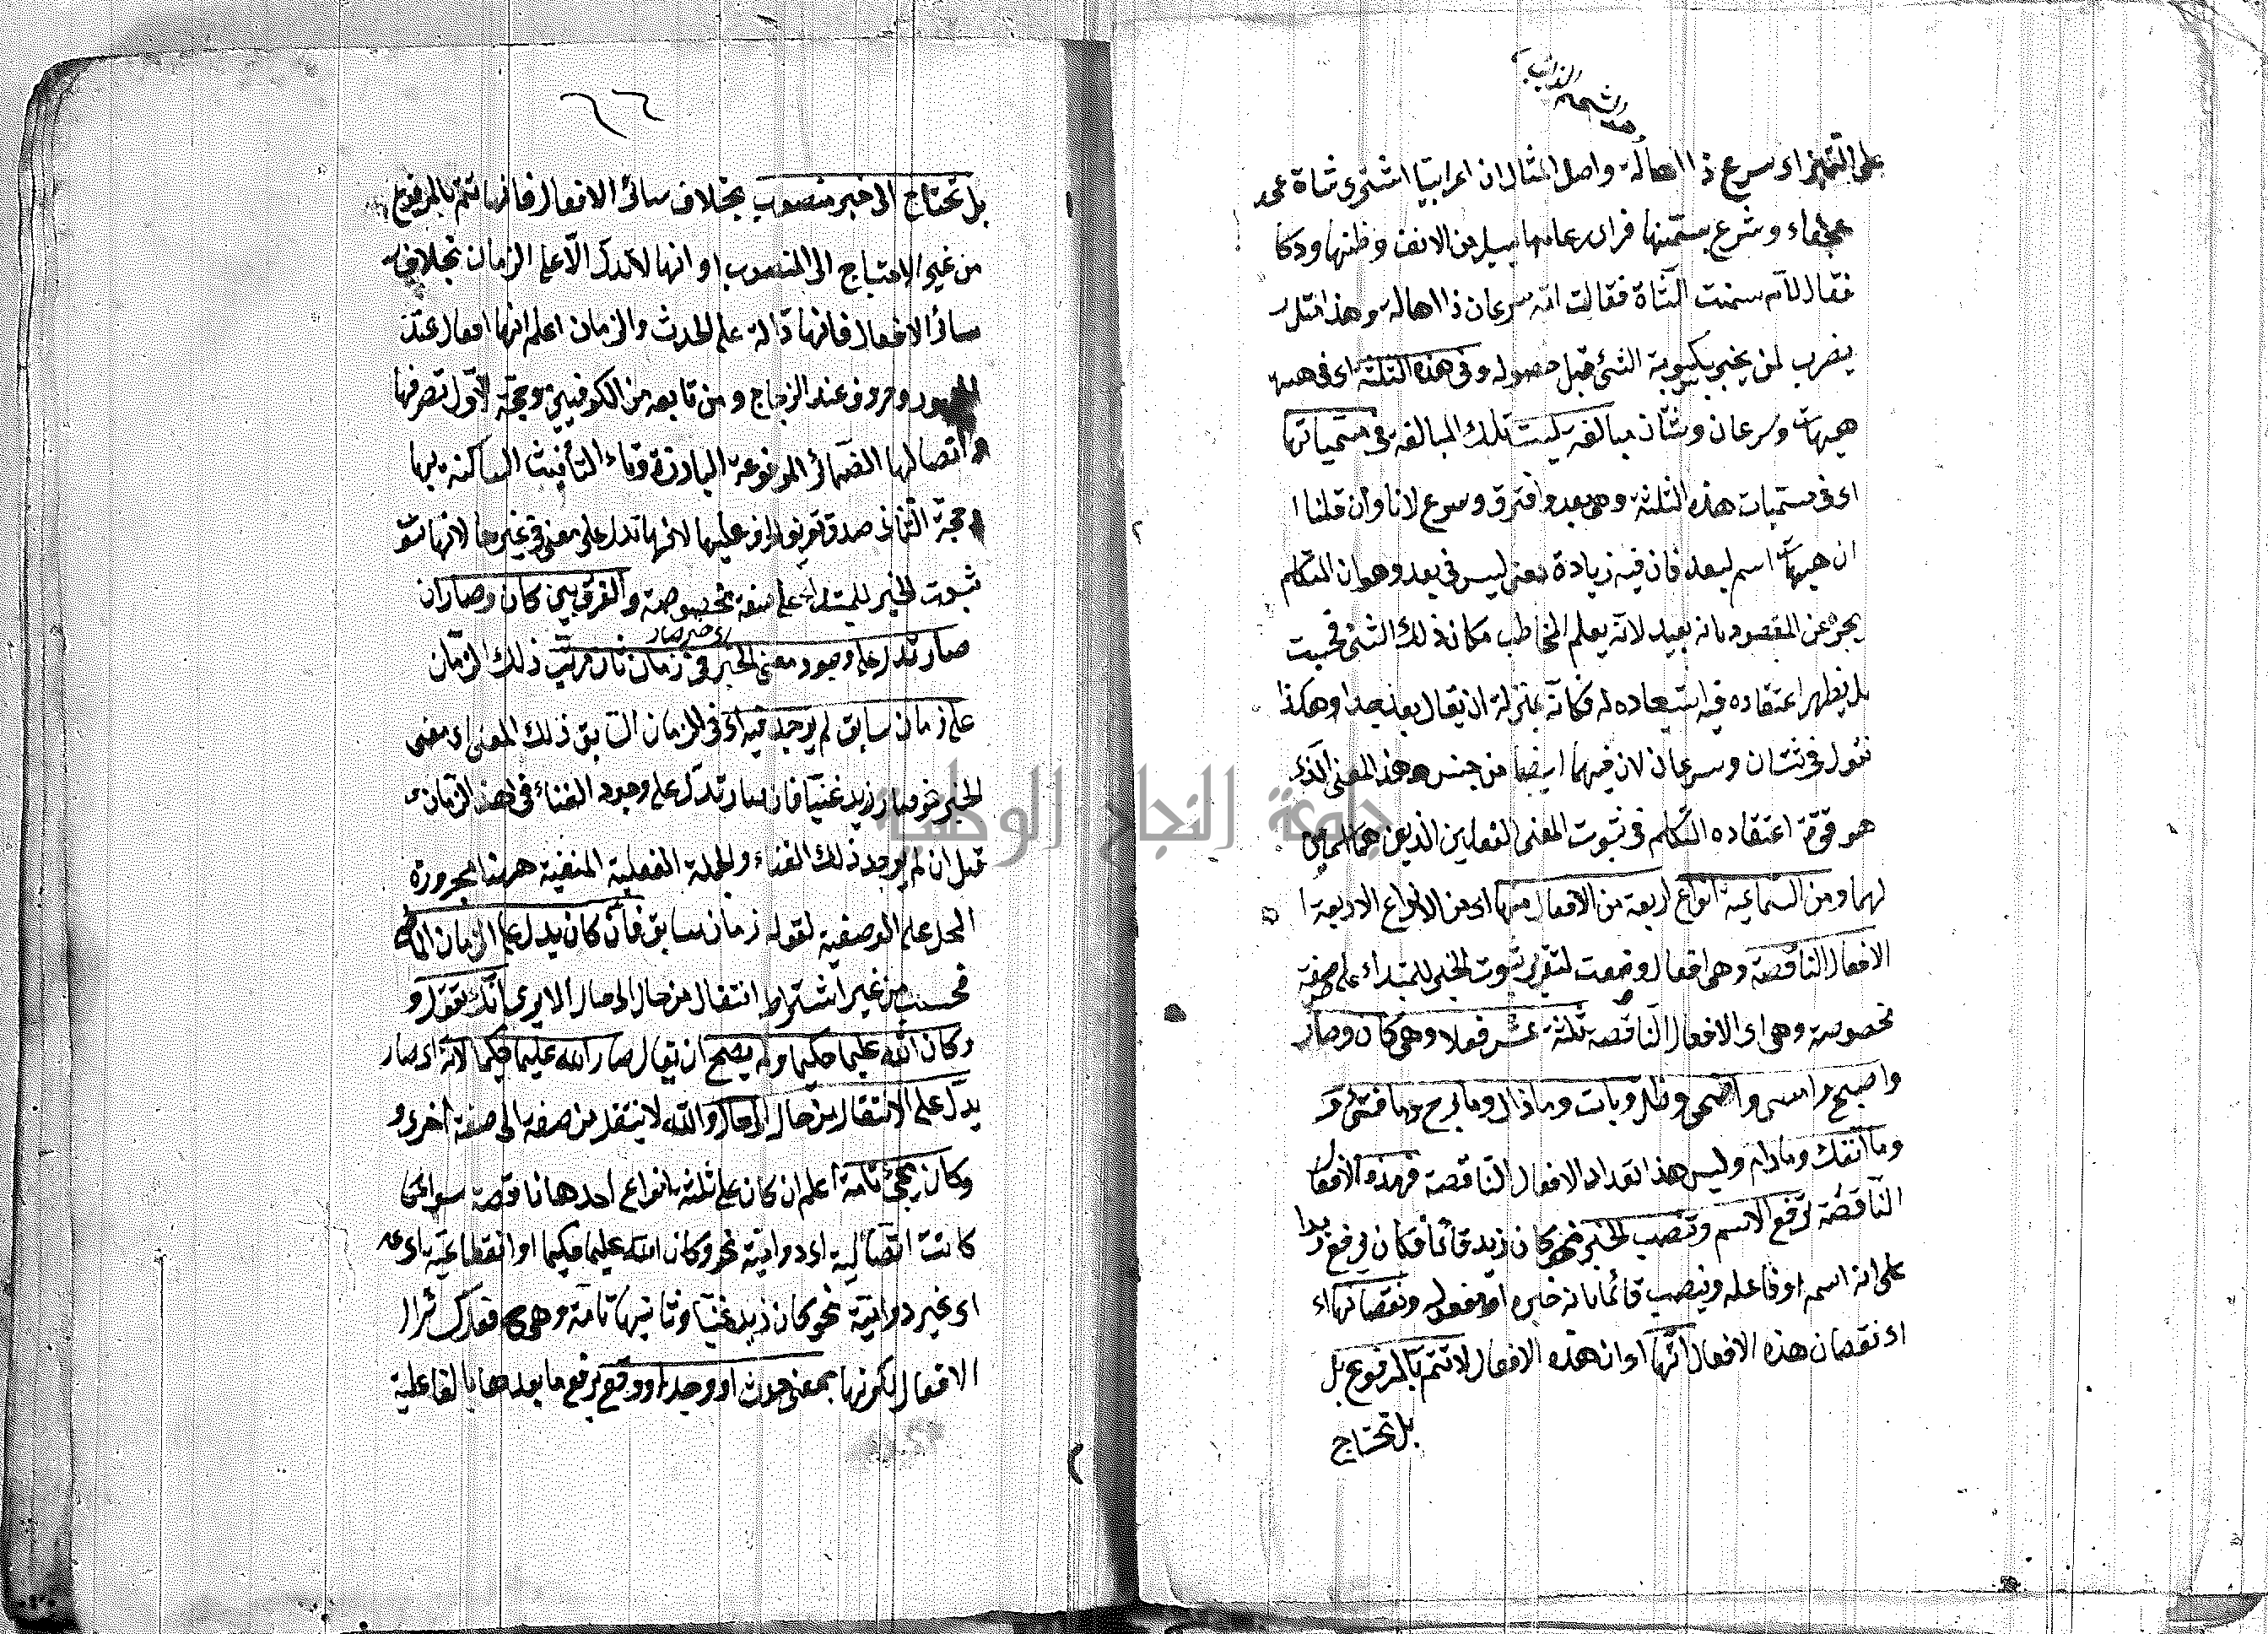 الشحم المذاب
على التمييز اى سرع ذا اهالة واصل المثال ان اعرابيا اشترى شاة
عجفاء وشرع يسمنها فراى رعامها يسيل من الانف وظنها ودكا
فقال لامه سمنت الشاة فقالت امه سرعان ذا اهالة وهذا مثل
يضرب لمن يخبر بكينونية الشئ قبل حصوله وفى هذه الثلثة اى فى
هيهات وسرعان وشتان مبالغة ليست تلك المبالغة فى مسمياتها
اى فى مسميات هذه الثلثة وهى بعد وافترق وسرع لانا وان قلنا
ان هيهات اسم لبعد فان فيه زيادة معنى ليس فى بعد وهو ان المتكلم
يخبر عن المقصود بانه بعيد لانه يعلم المخاطب مكان ذلك الشئ فحسب
بل يظهر اعتقاده فيه استبعاده له فكانه بمنزلة ان يقال بعد جدا وهكذا
نقول فى شتان وسرعان لان فيهما ايضا من جنس هذا المعنى الذى
هو قوة اعتقاده المتكلم فى ثبوت المعنى الفعلين الذين هما اسمان
لهما ومن السماعية انواع اربعة من الافعال منها اى من الانواع الاربعة
الافعال الناقصة وهى افعال وضعت لتقرير ثبوت الخبر للمبتداء على صفة
مخصوصة وهى اى الافعال الناقصة ثلثة عشر فعلا وهى كان وصار
واصبح وامسى واضحى وظل وبات وما زال وما برح وما فتئ و
وما انفك وما دام وليس هذا تعداد الافعال الناقصة فهذه الافعال
الناقصة ترفع الاسم وتنصب الخبر نحو كان زيد قائما فكان يرفع زيدا
على انه اسمه او فاعله وينصب قائما بانه خبره او مفعوله ونقصانها اى
اى نقصان هذه الافعال انها اى ان هذه الافعال لا تتم بالمرفوع بل
بل تحتاج
٦٦
بل تحتاج الى خبر منصوب بخلاف سائر الافعال فانها تتم بالمرفوع
من غير الاحتياج الى المنصوب او انها لا تدل الا على الزمان بخلاف
سائر الافعال فانها دالة على الحدث والزمان اعلم انها افعال عند
الجمهور وحروف عند الزجاج ومن تابعه من الكوفيين وحجة الاول تصرفها
واتصالها الضمائر المرفوعة البارزة وتاء التأنيث الساكنة بها
وحجة الثانى صدق تعريف الحرف عليها لانها تدل على معنى فى غيرها لانها
ثبوت الخبر للمبتداء على صفة مخصوصة والفرق بين كان وصار ان
اى خبر صار
صار تدل على وجود معنى الخبر فى زمان ثان مرتب ذلك الزمان
على زمان سابق لم يوجد فيه اى فى الزمان السابق ذلك المعنى اى معنى
الخبر نحو صار زيد غنيا فان صار تدل على وجود الغناء فى هذا الزمان
قبل ان لم يوجد ذلك الغناء والجملة الفعلية المنفية ههنا مجرورة
المحل على الوصفية لقوله زمان سابق فان كان يدل على الزمان الماضى
فحسب من غير اشتراط انتقال من حال الى حال الا يرى انك تقول و
وكان الله عليما حكيما ولم يصح ان يقال صار الله عليما حكيما لانه اى صار
يدل على الانتقال من حال الى حال والله لا ينتقل من صفة الى صفة اخرى و
وكان يجئ تامة اعلم ان كان على ثلثة انواع احدها ناقصة سواء
كانت اتصالية اى دوامية نحو وكان الله عليما حكيما او انقطاعية اى
اى غير دوامية نحو كان زيد غنيا وثانيها تامة وهى
الافعال لكونها بمعنى حدث او وجد او وقع يرفع ما بعدها بالفاعلية
جامعة النجاح الوطنية